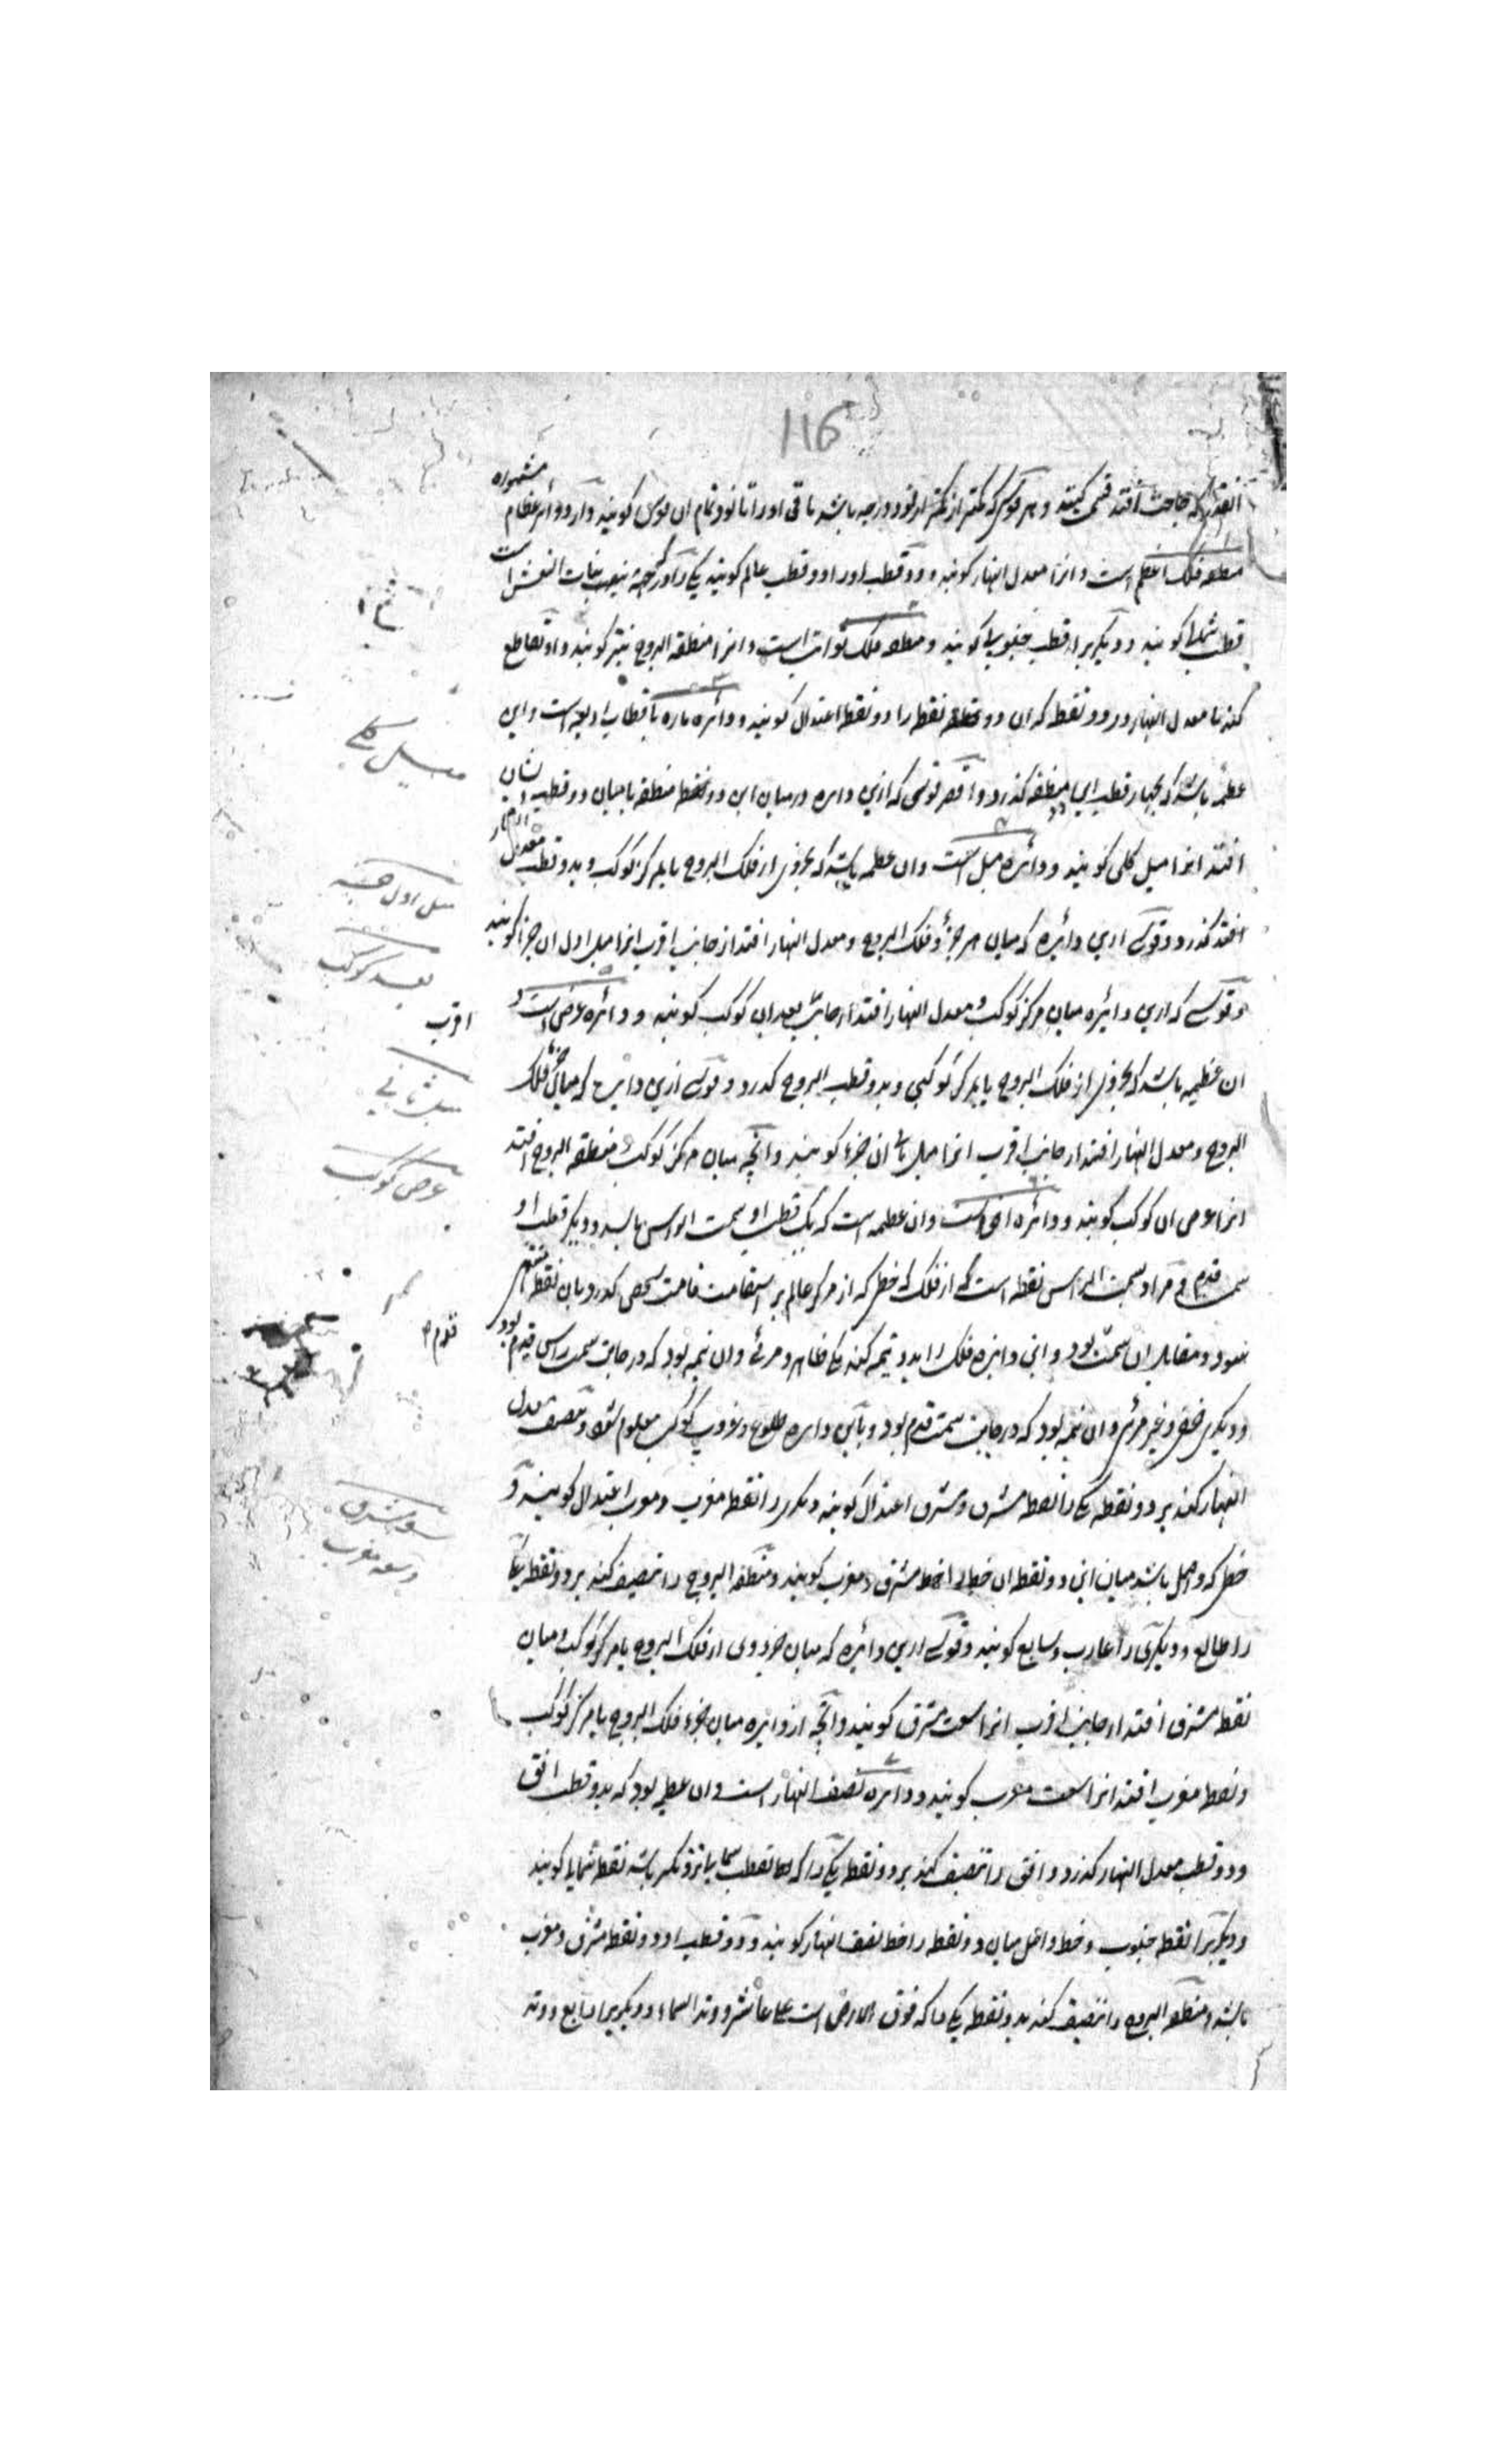 116
انقدر که حاجت افتد قسمت کنند و هر قوس که کمتر از نود درجه باشد باقی او را تا نود تمام ان قوس کویند و از دوائر عظام مشهوره
منطقه فلک اعظم است و انرا معدل النهار کویند و دو قطب او را دو قطب عالم کویند یکی را که در جهت بنات النعش است
قطب شمالی کویند و دیکریرا قطب جنوبی کویند و منطقه فلک ثوابت است و انرا منطقه البروج نیز کویند و او تقاطع
کند با معدل النهار در دو نقطه که ان دو نقطه را دو نقطه اعتدال کویند و دائره ماره باقطاب اربعه است و این
عظیمه باشد که بچهار قطب این دو منطقه کذرد و اقصر قوسی که ازین دایره در میان این دو منطقه یا میان دو قطب ایشان
افتد انرا میل کلی کویند و دائره میل است و ان عظیمه باشد که بجزوی از فلک البروج یا بمرکز کوکب و بدو قطب معدل النهار
افتد کذرد و قوسی ازین دائره که میان هر جزؤ فلک البروج و معدل النهار افتد از جانب اقرب انرا میل اول ان جزء کویند
و قوسی که ازین دایره میان مرکز کوکب و معدل النهار افتد از جانب بعد ان کوکب کویند و دائره عرض است و
اقرب
ان عظیمه باشد که بجزوی از فلک البروج یا بمرکز کوکبی و بدو قطب البروج کذرد و قوسی ازین دایره که میان جزء فلک
البروج و معدل النهار افتد از جانب اقرب انرا میل ثانی ان جزء کویند و آنچه میان مرکز کوکب و منطقه البروج افتد
انرا عرض ان کوکب کویند و دائره افق است و ان عظیمه است که یک قطب او سمت الراس باشد و دیکر قطب او
سمت قدم و مراد بسمت الراس نقطه است از فلک که خطی که از مرکز عالم بر استقامت قامت شخص کذرد بان نقطه منتهی
شود و مقابل ان سمت بود و این دایره فلک را بدو نیمه کند یکی ظاهر و مرئی و ان نیمه بود که در جانب سمت راس بود
قدم
و دیکری خفی و غیر مرئی و ان نیمه بود که در جانب سمت قدم بود و باین دایره طلوع و غروب کوکب معلوم شود و تنصیف معدل
النهار کند بر دو نقطه یکی را نقطه مشرق و مشرق اعتدال کویند و دیکریرا نقطه مغرب و مغرب اعتدال کویند و
خطی که واصل باشد میان این دو نقطه ان خط را خط مشرق و مغرب کویند و منطقه البروج را تنصیف کند بر دو نقطه یکی
را طالع و دیکری را غارب و سابع کویند و قوسی ازین دائره که میان جزوی از فلک البروج یا مرکز کوکب و میان
نقطه مشرق افتد از جانب اقرب انرا سعت مشرق کویند و آنچه از دایره میان جزء فلک البروج یا مرکز کوکب
و نقطه مغرب افتد انرا سعت مغرب کویند و دائره نصف النهار است و ان عظیمه بود که بدو قطب افق
و دو قطب معدل النهار کذرد و افق را تنصیف کند بر دو نقطه یکی را که بقطب شمالی نزدیکتر باشد نقطه شمال کویند
و دیکریرا نقطه جنوب و خط واصل میان دو نقطه را خط نصف النهار کویند و دو قطب او دو نقطه مشرق و مغرب
باشد و منطقه البروج را تنصیف کند بدو نقطه یکی را که فوق الارض است عاشر و وتد السماء و دیکریرا رابع و وتد
میل کلی
میل اول
بعد کوکب
میل ثانی
عرض کوکب
سعه مشرق
و سعه مغرب